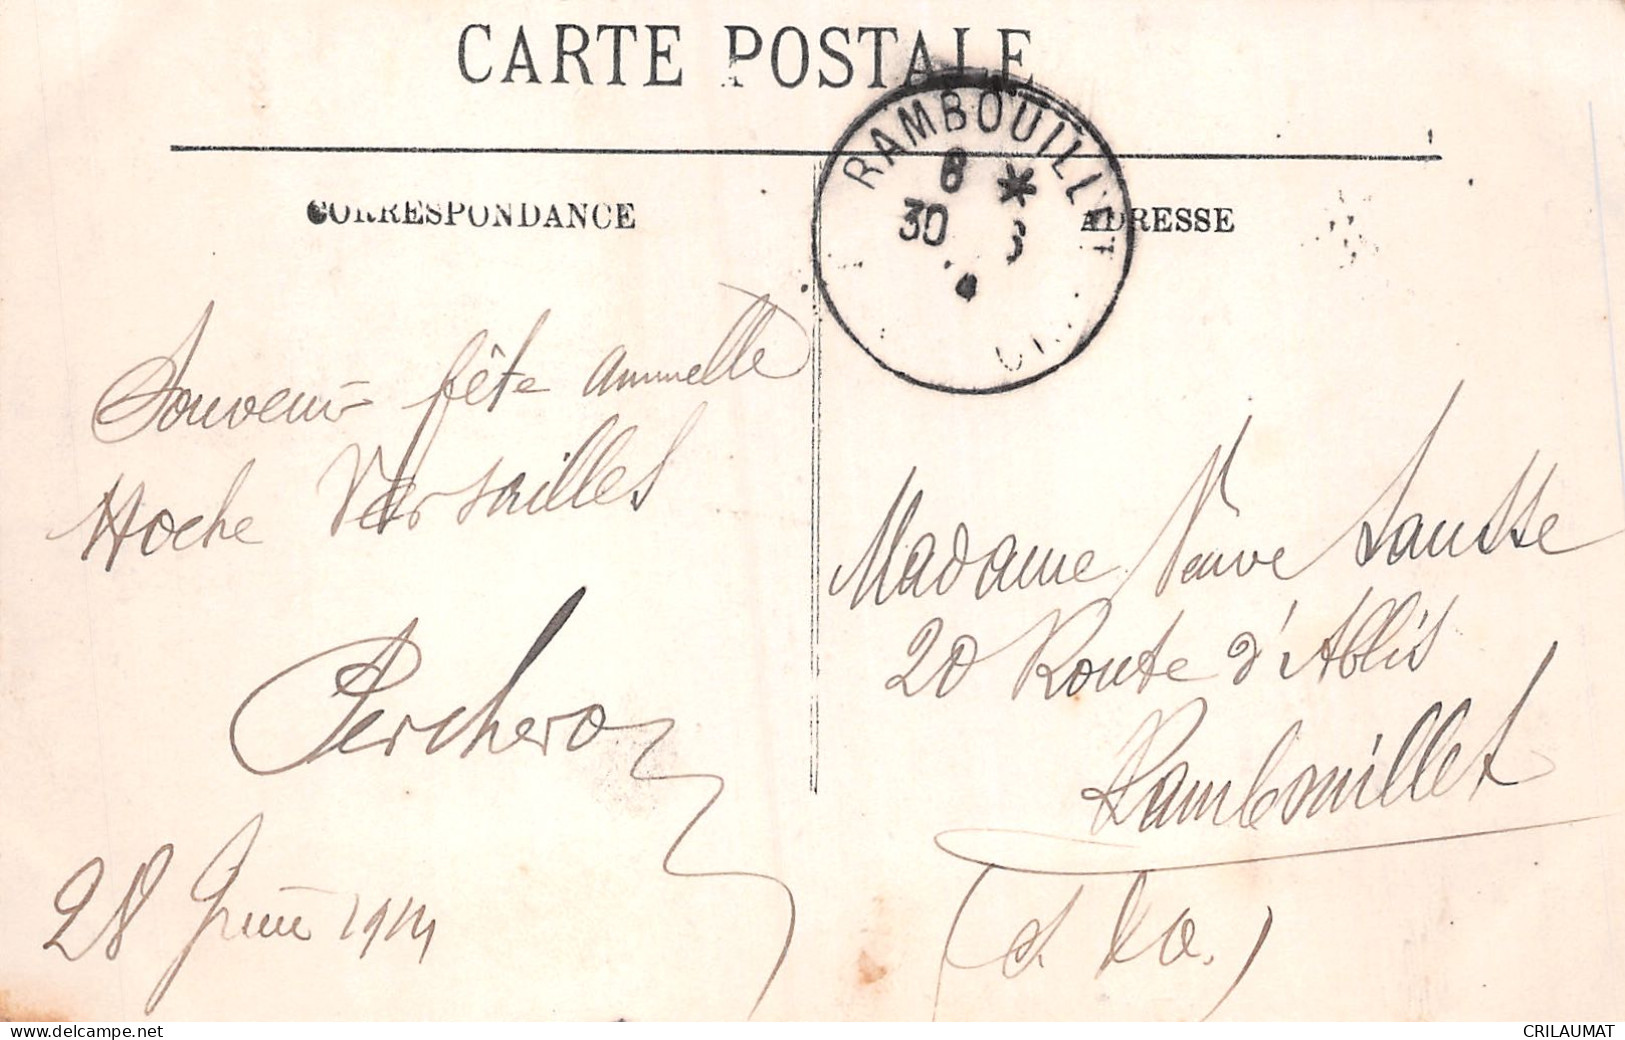 CARTE POSTALE
RAMBOUILLET
8 *
30 6
CORRESPONDANCE
ADRESSE
Souvenir fête annuelle
Hoche Versailles
Percheron
28 Juin 1914
Madame Veuve Sausse
20 Route d'Ablis
Rambouillet
(S. &. O.)
www.delcampe.net
CRILAUMAT